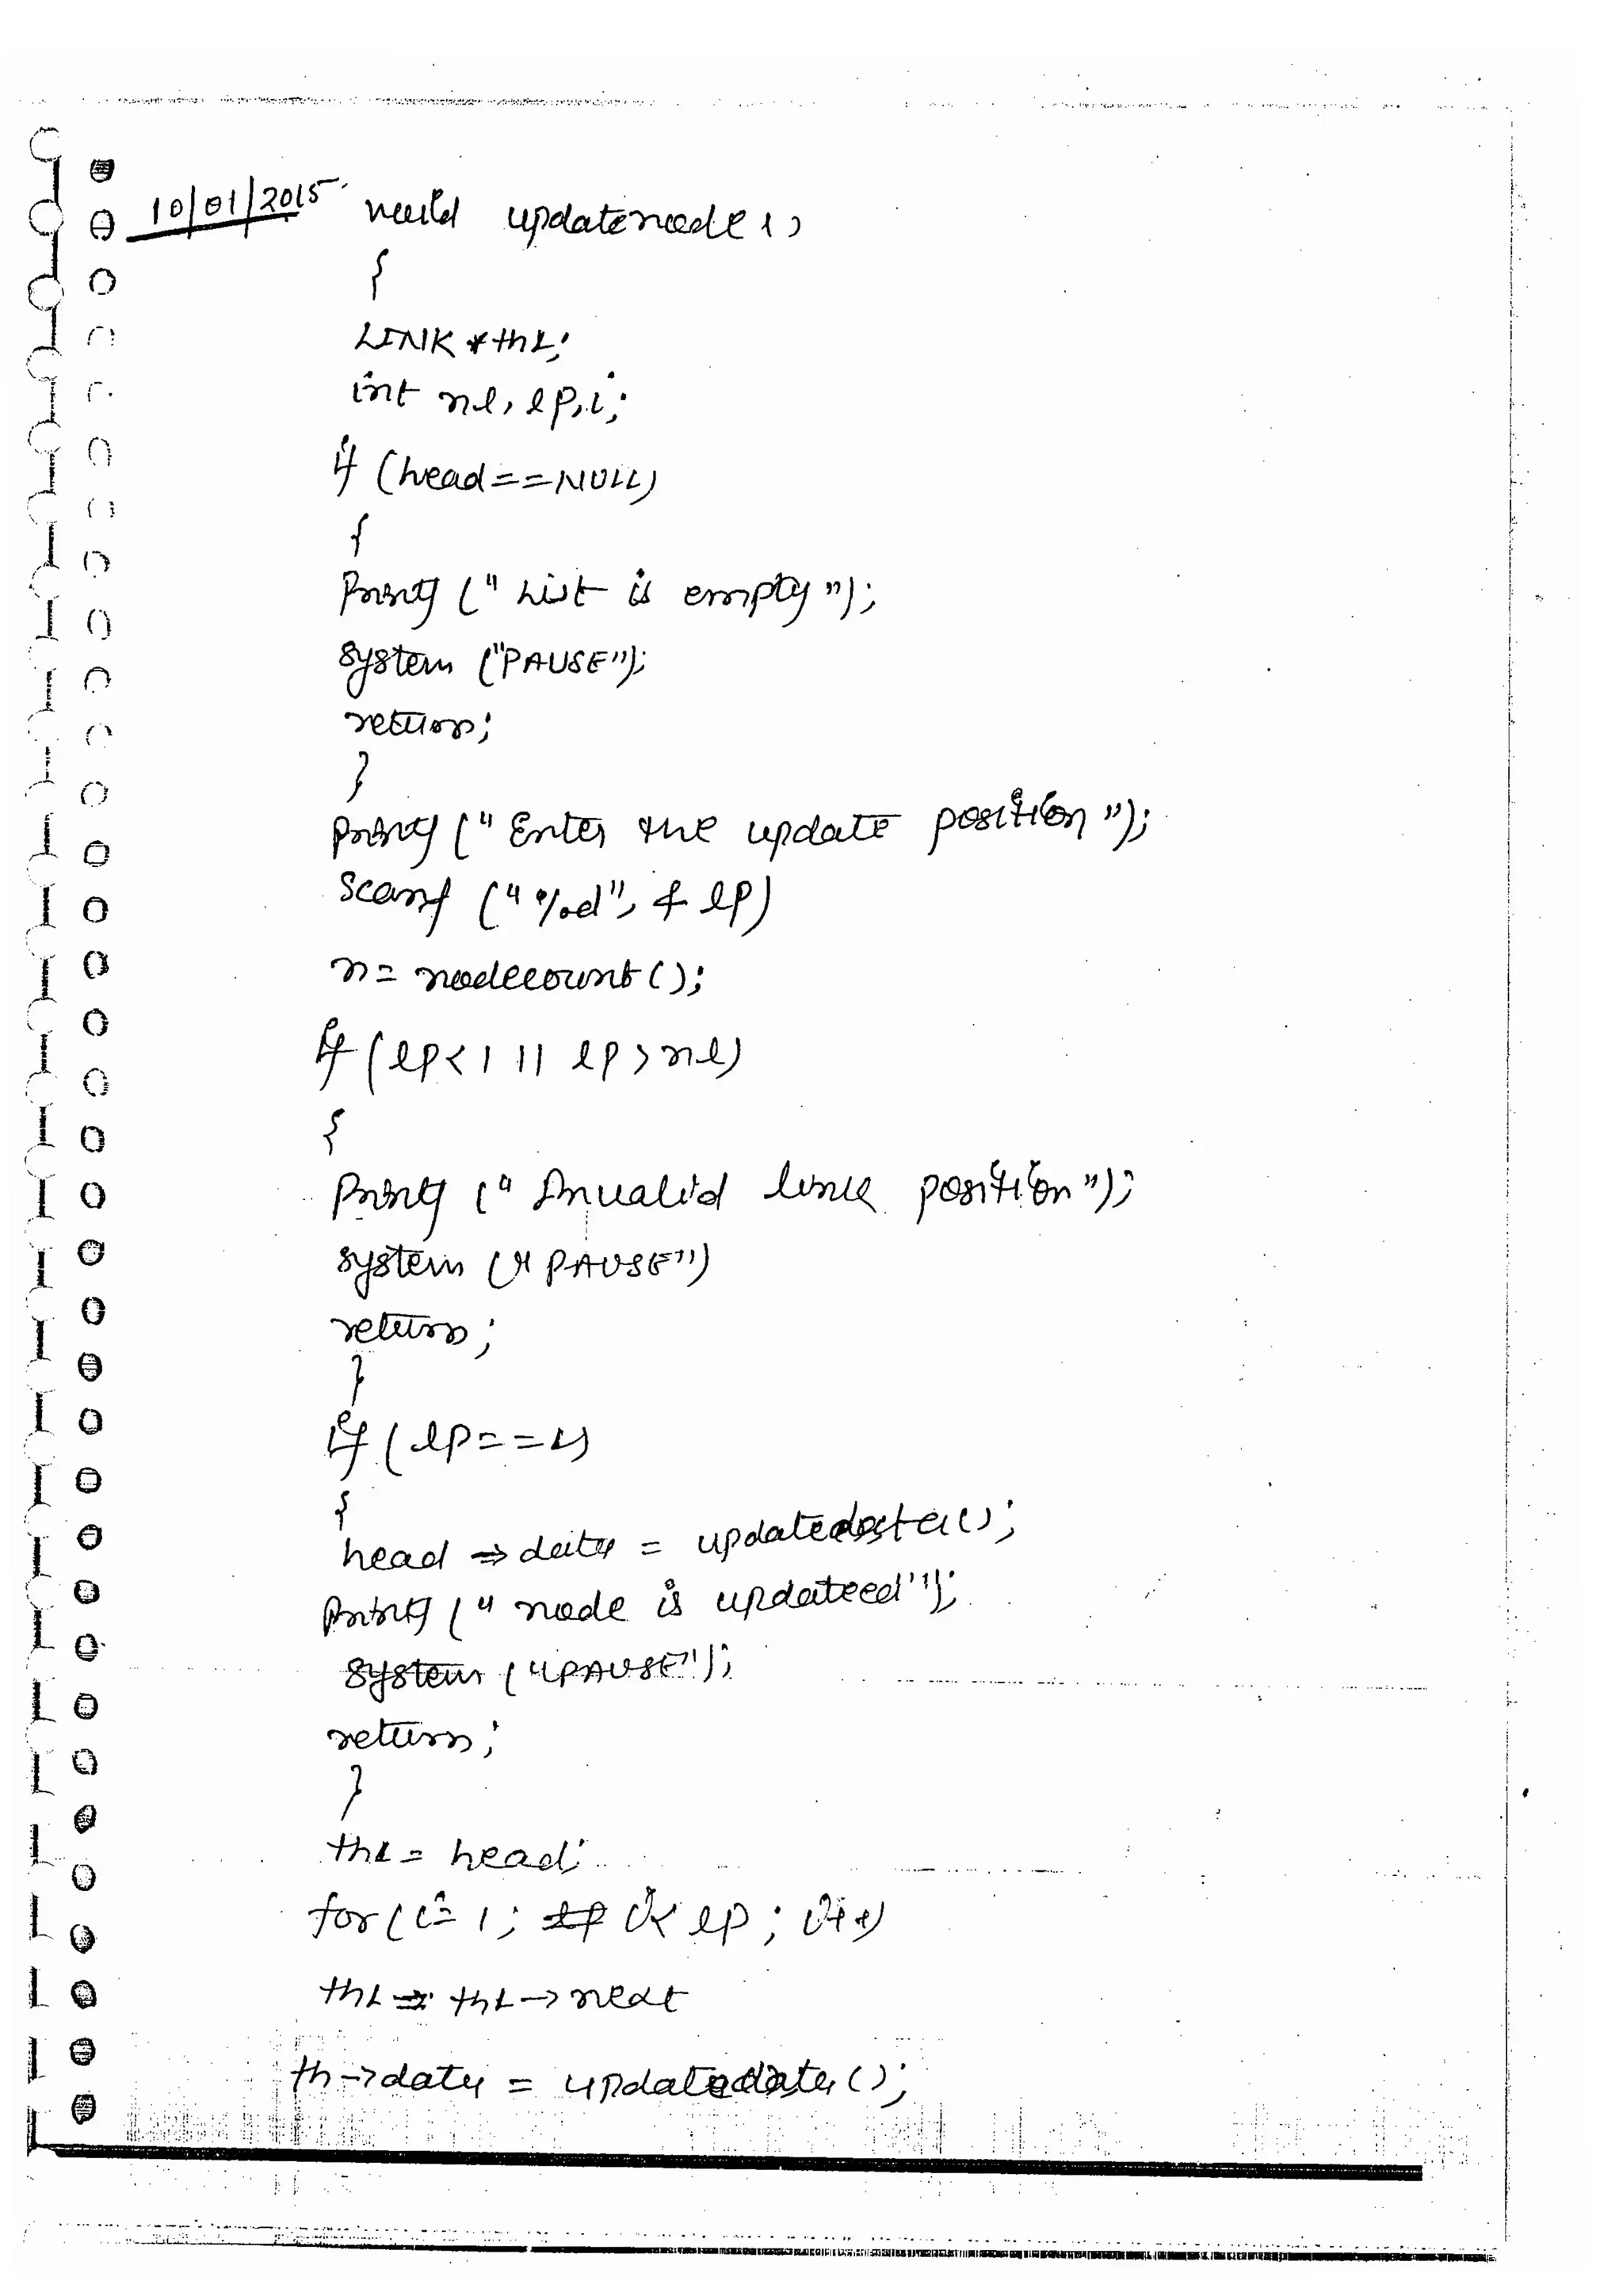 10/01/2015 void updatenode()
{
LINK *th1;
int nl, lp, i;
if (head==NULL)
{
Printf ("List is empty");
system ("PAUSE");
return;
}
printf ("Enter the update position");
Scanf ("%d", & lp)
n = nodecount();
if (lp<1 || lp>nl)
{
Printf (" Invalid link position");
system ("PAUSE")
return;
}
if (lp==1)
{
head → data = updatedata();
Printf (" node is updateed");
system ("PAUSE");
return;
}
th1 = head;
for (i=1; i< lp; i++)
th1 = th1→next
th→data = updatedata();